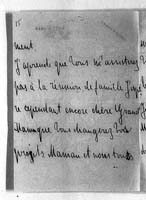 15
ment
J'apprends que vous n'assisterez
pas à la réunion de famille. J'espè
re cependant encore chère Grand
Maman que vous changerez vos
projets. Maman et nous tous